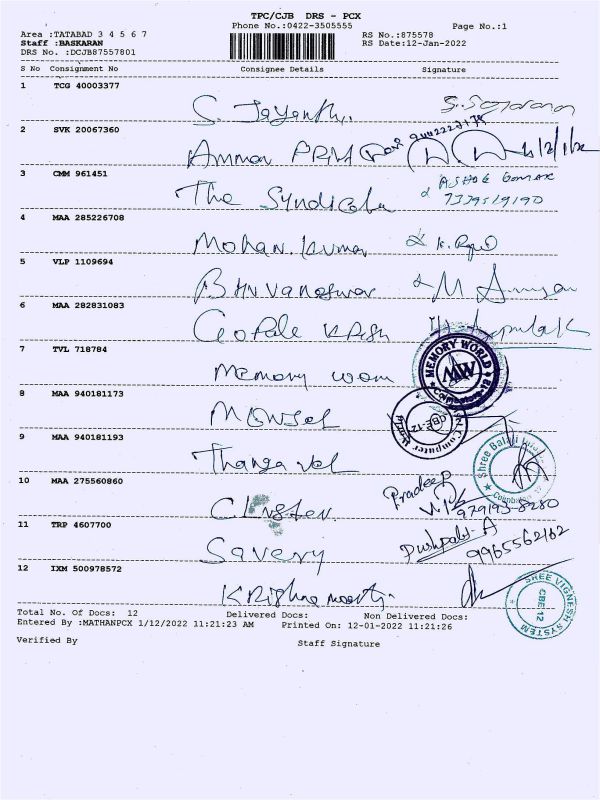 TPC/CJB DRS - PCX
Phone No.:0422-3505555 Page No.:1
Area :TATABAD 3 4 5 6 7 RS No.:875578
Staff :BASKARAN RS Date:12-Jan-2022
DRS No. :DCJB87557801
S No Consignment No Consignee Details Signature
1 TCG 40003377
S. Jayanthi
2 SVK 20067360
Amman
3 CMM 961451
The Syndicate
7339519190
4 MAA 285226708
Mohan. kumar
5 VLP 1109694
Bhuvaneswar
6 MAA 282831083
Gopale krish
7 TVL 718784
Memory
MEMORY WORLD
MW
Coimbatore-12
8 MAA 940181173
Computer
CBE-12
9 MAA 940181193
Thangavel
Shree Balaji
Coimbatore
10 MAA 275560860
Pradeep
Cluster
979193-8280
11 TRP 4607700
Pushpalat-A
Savery
9965562162
12 IXM 500978572
Krishna moorthy
SREE VIGNESH SYSTEM
CBE 12
Total No. Of Docs: 12 Delivered Docs: Non Delivered Docs:
Entered By :MATHANPCX 1/12/2022 11:21:23 AM Printed On: 12-01-2022 11:21:26
Verified By Staff Signature